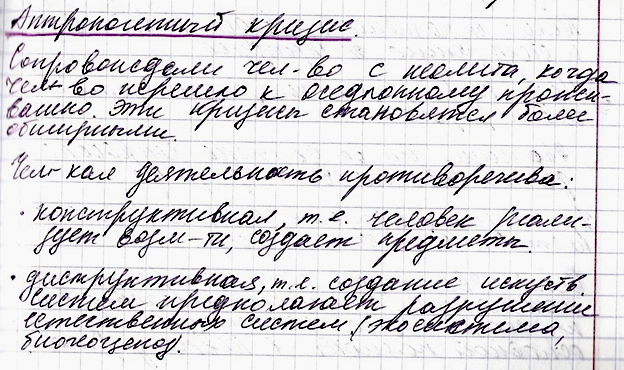 Антропогенный кризис.
Сопровождали чел-во с неолита, когда
чел-во перешло к оседлому прожи-
ванию эти кризисы становятся более
обширными.
Чел-кая деятельность противоречива:
· конструктивная, т.е. человек реали-
зует возм-ти, создает предметы.
· диструктивная, т.е. создание искуств.
систем предполагает разрушение
естественных систем (экосистема,
биогеоценоз).